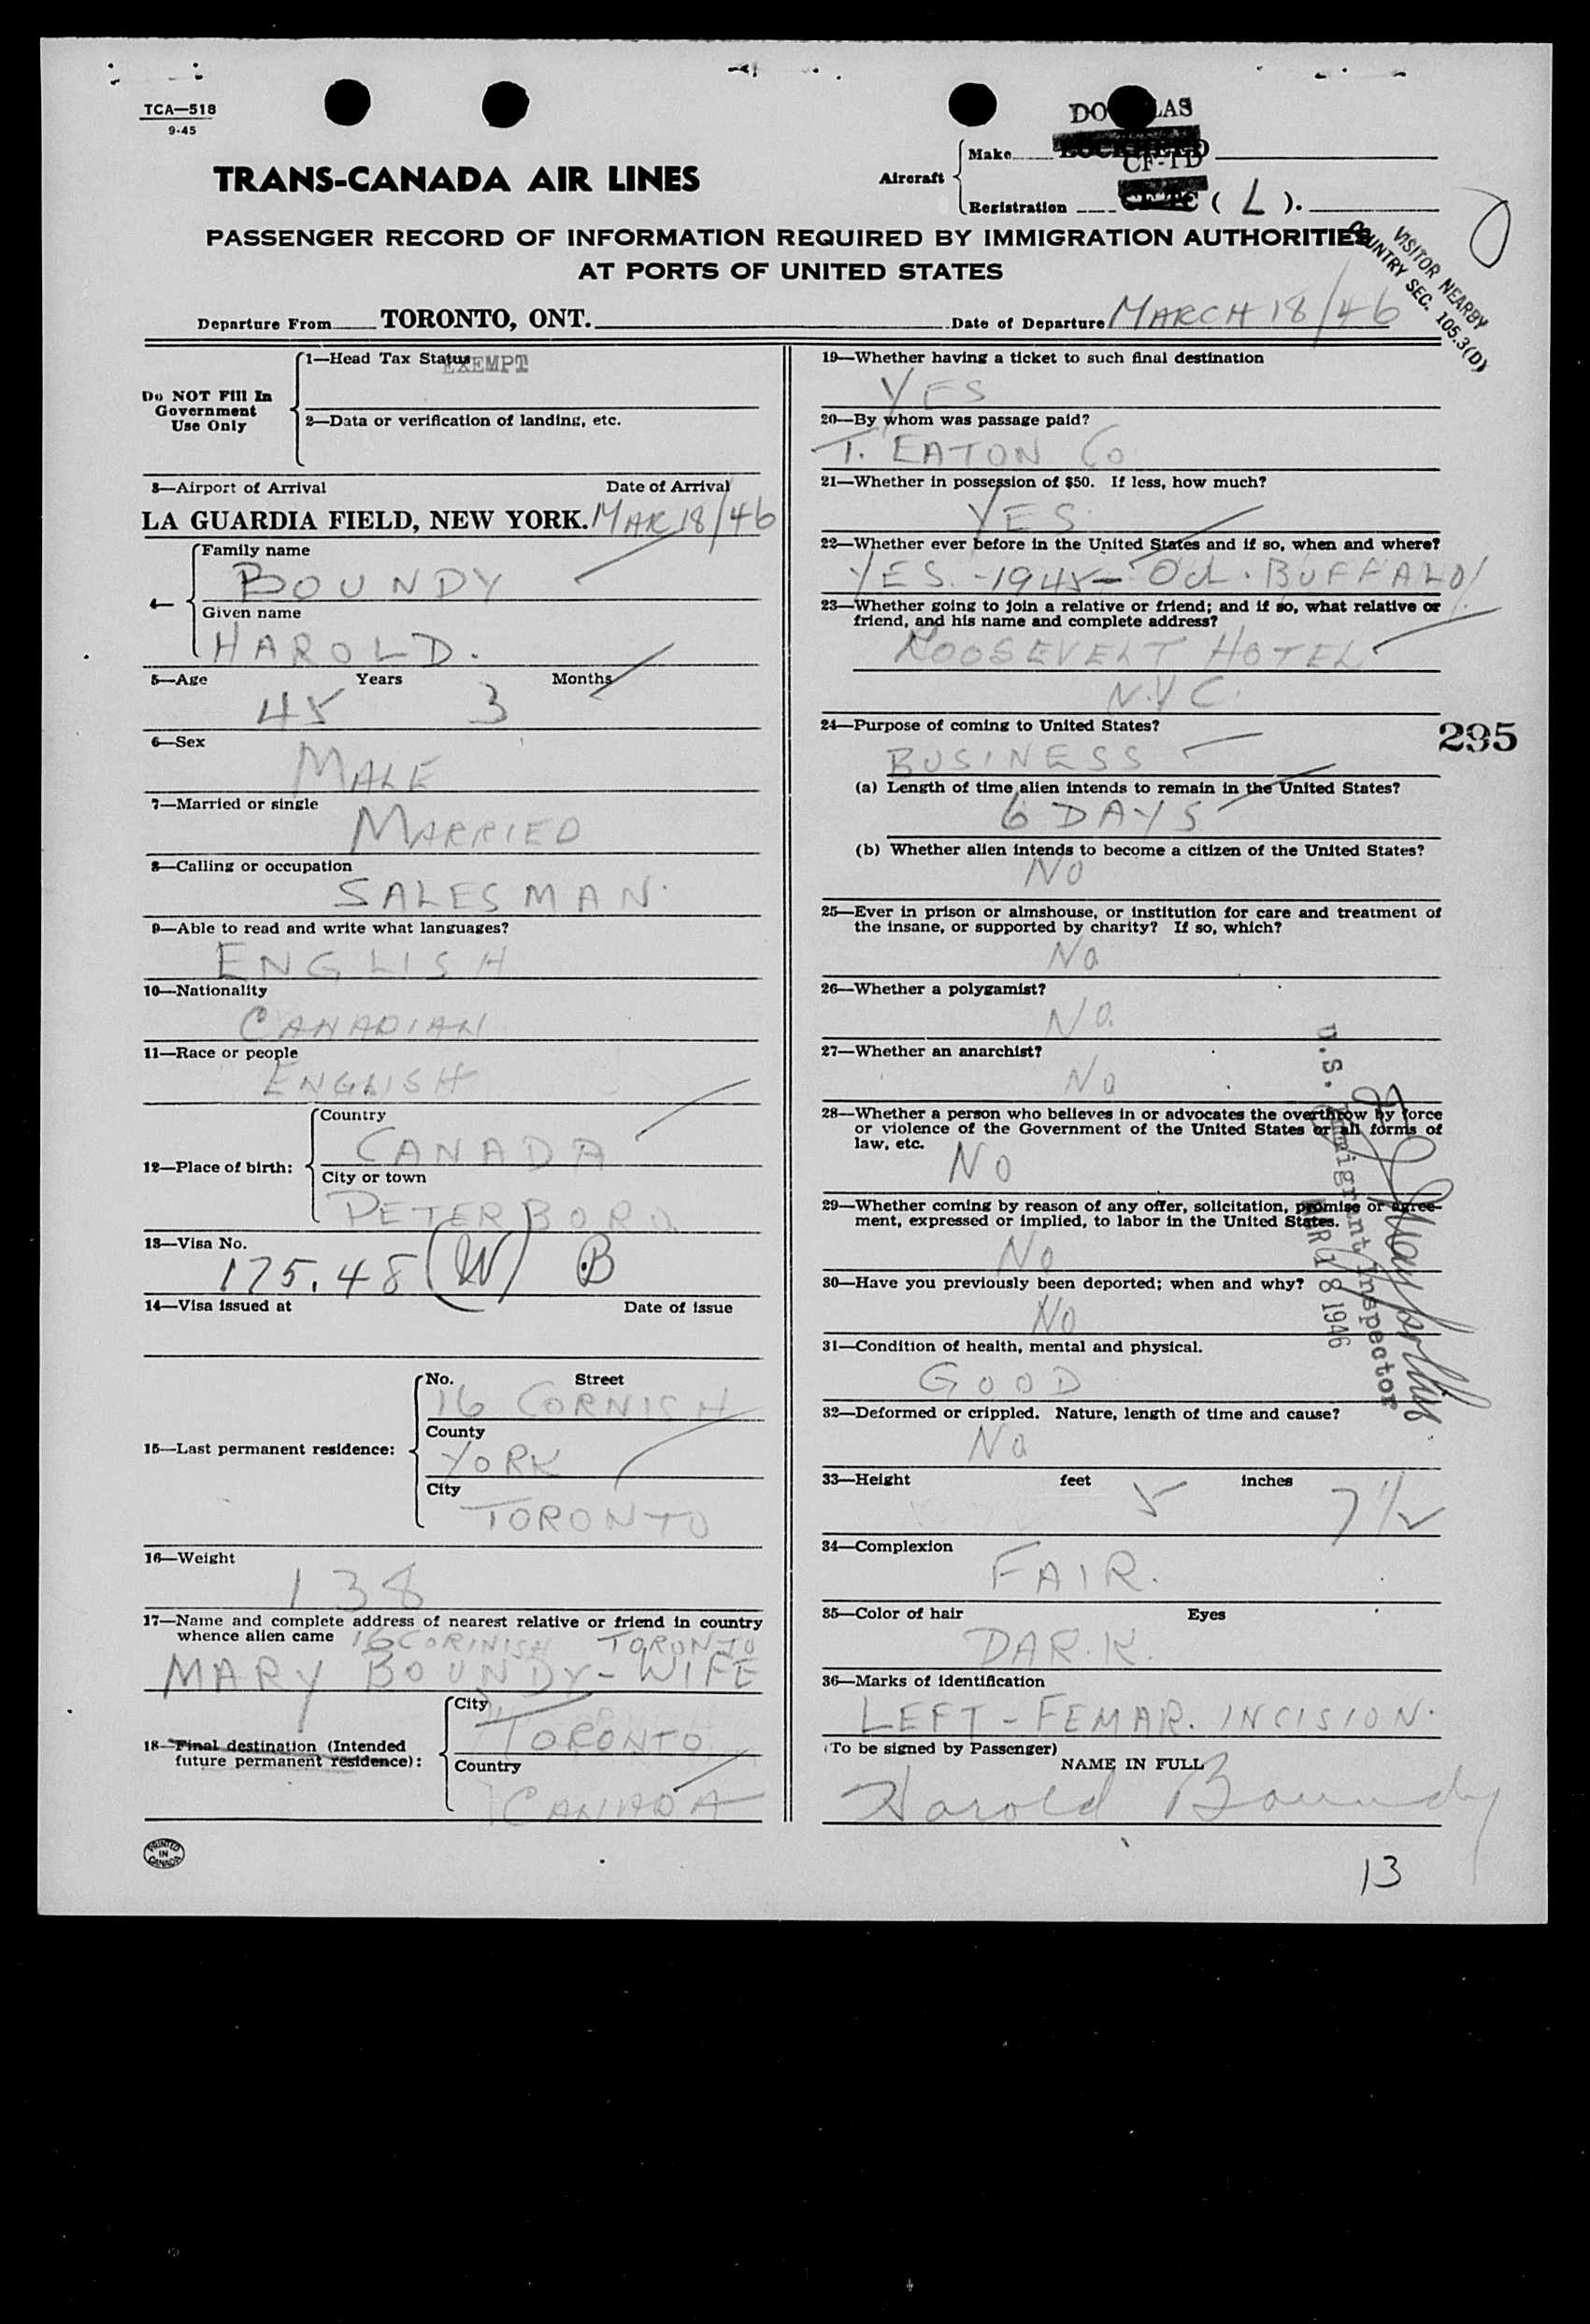 TCA—518
9-45
TRANS-CANADA AIR LINES
DOUGLAS
Aircraft
Make LOCKHEED
CF-TD
Registration CF-TC ( L ).
PASSENGER RECORD OF INFORMATION REQUIRED BY IMMIGRATION AUTHORITIES
AT PORTS OF UNITED STATES
VISITOR NEARBY
COUNTRY SEC. 105.3(D)
Departure From TORONTO, ONT. Date of Departure MARCH 18/46
Do NOT Fill In
Government
Use Only
1—Head Tax Status EXEMPT
2—Data or verification of landing, etc.
3—Airport of Arrival Date of Arrival
LA GUARDIA FIELD, NEW YORK. MAR 18/46
4—
Family name
BOUNDY
Given name
HAROLD.
5—Age Years Months
45 3
6—Sex
MALE
7—Married or single
MARRIED
8—Calling or occupation
SALESMAN.
9—Able to read and write what languages?
ENGLISH
10—Nationality
CANADIAN
11—Race or people
ENGLISH
12—Place of birth:
Country
CANADA
City or town
PETERBORO
13—Visa No.
175.48 (W) B
14—Visa issued at Date of issue
15—Last permanent residence:
No. Street
16 CORNISH
County
YORK
City
TORONTO
16—Weight
138
17—Name and complete address of nearest relative or friend in country
whence alien came 16 CORINISH TORONTO
MARY BOUNDY - WIFE
18—Final destination (Intended
future permanent residence):
City
TORONTO
Country
CANADA
PRINTED
IN
CANADA
19—Whether having a ticket to such final destination
YES
20—By whom was passage paid?
T. EATON Co
21—Whether in possession of $50. If less, how much?
YES.
22—Whether ever before in the United States and if so, when and where?
YES. - 1945 - Oct. BUFFALO
23—Whether going to join a relative or friend; and if so, what relative or
friend, and his name and complete address?
ROOSEVELT HOTEL
N.Y.C.
24—Purpose of coming to United States?
BUSINESS
295
(a) Length of time alien intends to remain in the United States?
6 DAYS
(b) Whether alien intends to become a citizen of the United States?
NO
25—Ever in prison or almshouse, or institution for care and treatment of
the insane, or supported by charity? If so, which?
No
26—Whether a polygamist?
NO.
27—Whether an anarchist?
No
28—Whether a person who believes in or advocates the overthrow by force
or violence of the Government of the United States or all forms of
law, etc.
NO
29—Whether coming by reason of any offer, solicitation, promise or agree-
ment, expressed or implied, to labor in the United States.
No
30—Have you previously been deported; when and why?
No
U.S. Immigrant Inspector
MAR 18 1946
31—Condition of health, mental and physical.
GOOD
32—Deformed or crippled. Nature, length of time and cause?
No
33—Height feet 5 inches 7 1/2
34—Complexion
FAIR.
35—Color of hair Eyes
DARK.
36—Marks of identification
LEFT - FEMAR. INCISION.
(To be signed by Passenger)
NAME IN FULL
Harold Boundy
13